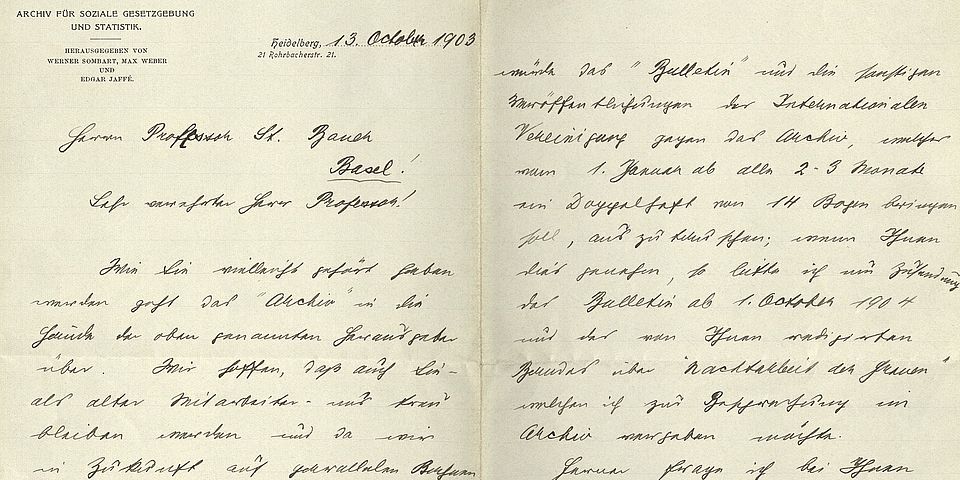 ARCHIV FÜR SOZIALE GESETZGEBUNG
UND STATISTIK.
HERAUSGEGEBEN VON
WERNER SOMBART, MAX WEBER
UND
EDGAR JAFFÉ.
Heidelberg, 13. October 1903
21 Rohrbacherstr. 21.
Herrn Professor St. Bauer
Basel!
Sehr verehrter Herr Professor!
Wie Sie vielleicht gehört haben
werden geht das "Archiv" in die
Hände der oben genannten Herausgeber
über. Wir hoffen, daß auch Sie -
als alter Mitarbeiter - uns treu
bleiben werden und da wir
in Zukunft auf parallelen Bahnen
würde das "Bulletin" und die sonstigen
Veröffentlichungen der Internationalen
Vereinigung gegen das Archiv, welches
vom 1. Januar ab alle 2-3 Monate
ein Doppelheft von 14 Bogen bringen
soll, aus zu tauschen; wenn Ihnen
dies genehm, so bitte ich um Zusendung
des Bulletin ab 1. October 1904
und des von Ihnen redigirten
Bandes über "Nachtarbeit der Frauen"
welchen ich zur Besprechung im
Archiv vergeben möchte.
Ferner frage ich bei Ihnen